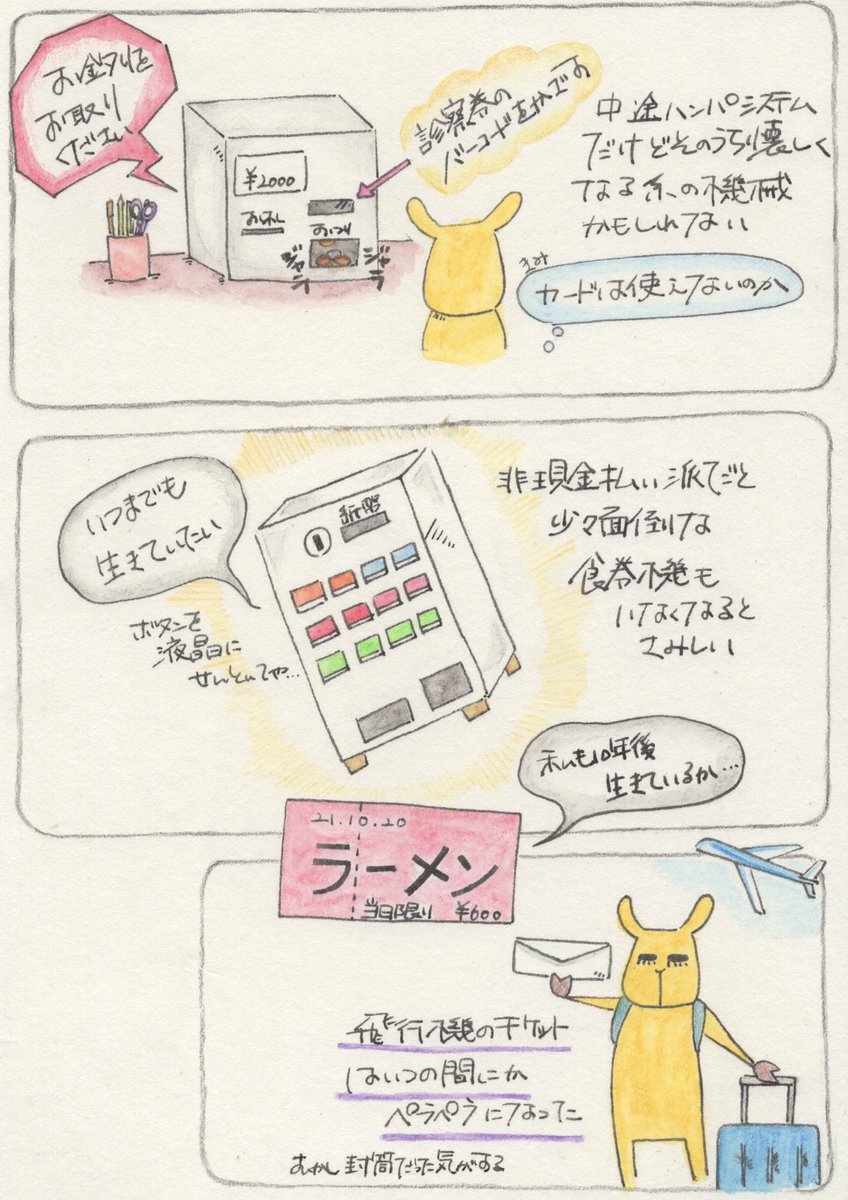 お金タリを
お取り
ください
診察券の
バーコードをかざす
¥2000
おさつ
おつり
ジャ
ラ
ジャ
ラ
中途ハンパシステム
だけどそのうち懐しく
なる系の機械
かもしれない
まみ
カードは使えないのか
いつまでも
生きていたい
紙幣
ボタンを
液晶に
せんといてや…
非現金払い派だと
少々面倒な
食券機も
いなくなると
さみしい
私も10年後
生きているか…
21.10.20
ラーメン
当日限り ¥600
飛行機のチケット
はいつの間にか
ペラペラになってた
むかし封筒だった気がする